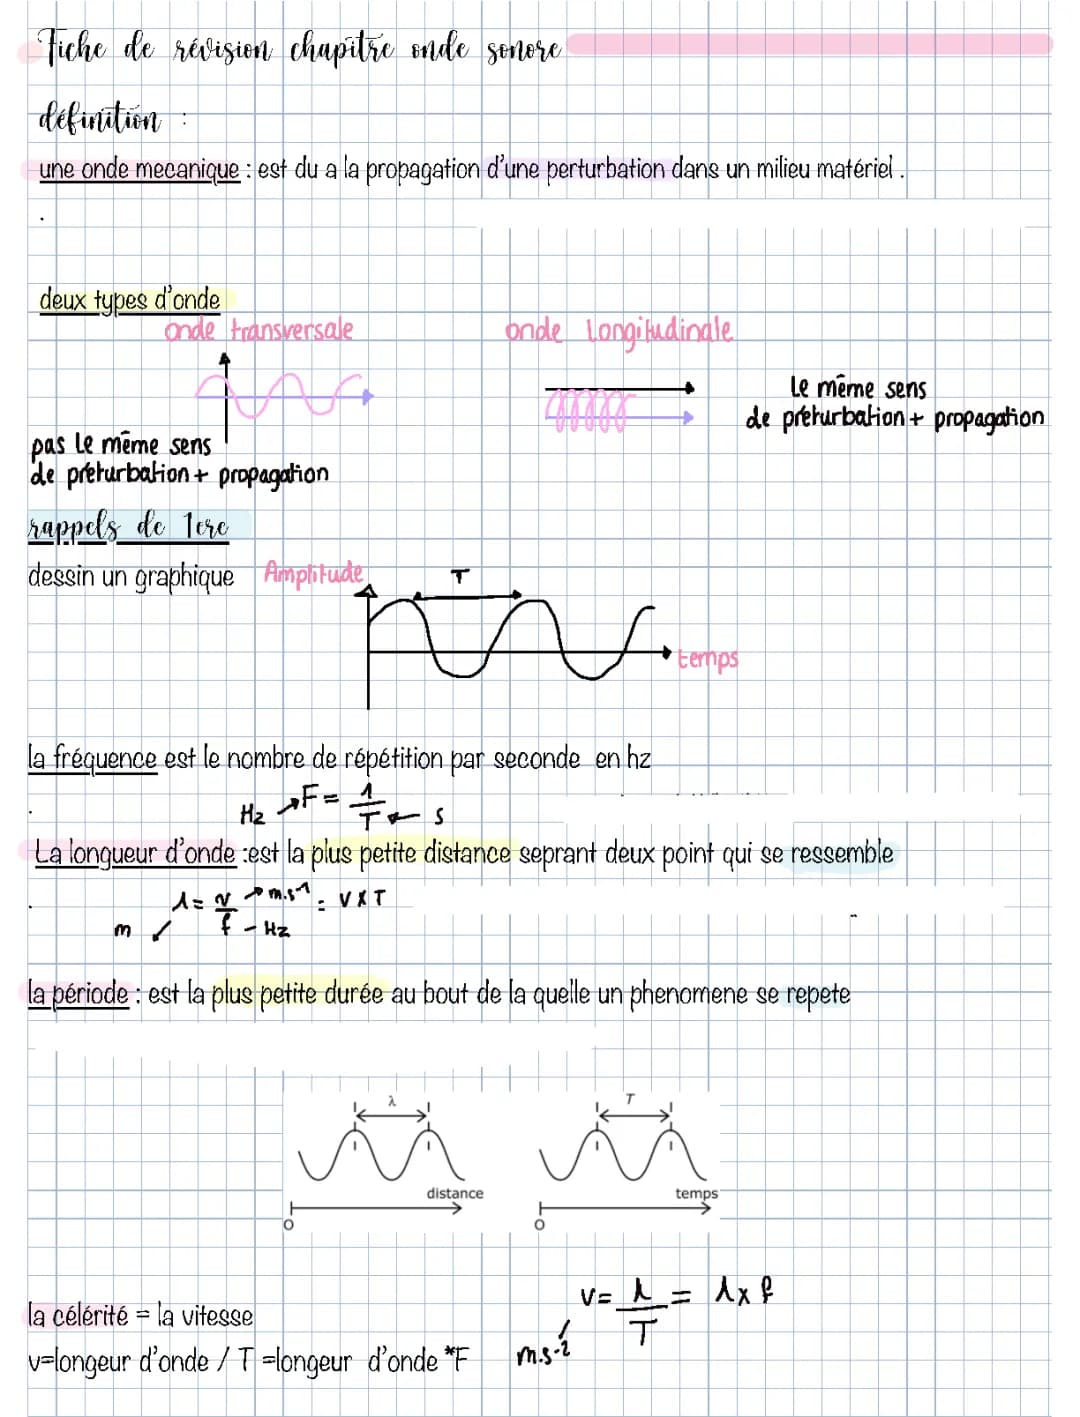 Fiche de révision chapitre onde sonore
définition :
une onde mecanique : est du a la propagation d'une perturbation dans un milieu matériel .
.
deux types d'onde
onde transversale
onde Longitudinale
Le même sens
de préturbation + propagation
pas Le même sens
de préturbation + propagation
rappels de 1ere
dessin un graphique
Amplitude
T
temps
la fréquence est le nombre de répétition par seconde en hz
Hz → F = 1/T ← s
La longueur d'onde :est la plus petite distance seprant deux point qui se ressemble
m ↙ λ = v/f → m.s⁻¹ = V x T
f - Hz
la période : est la plus petite durée au bout de la quelle un phenomene se repete
λ
T
distance
temps
O
O
la célérité = la vitesse
v=longeur d'onde / T =longeur d'onde *F
V = λ/T = λ x f
m.s-1